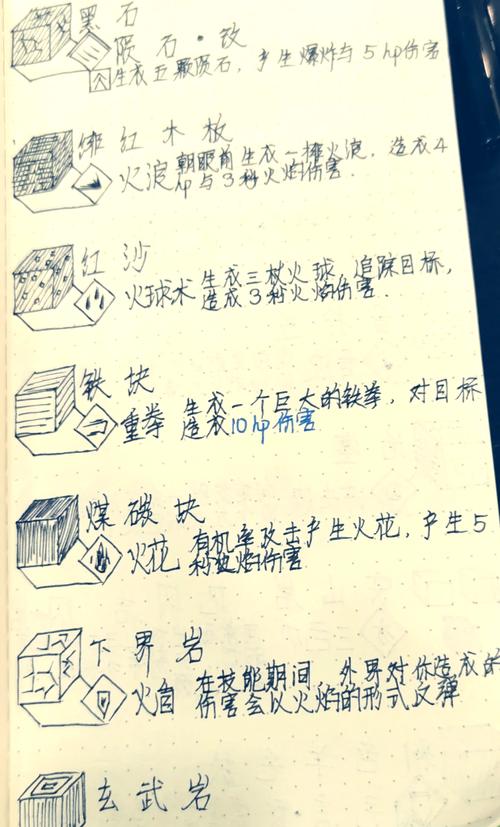 黑石
陨石·改
生成五颗陨石，产生爆炸与5hp伤害
绯红木板
火浪 朝眼前生成一摊火浪，造成4
hp与3秒火焰伤害.
红沙
火球术 生成三枚火球 追踪目标，
造成3秒火焰伤害.
铁块
重拳 生成一个巨大的铁拳，对目标
造成10hp伤害
煤碳块
火花 有机率攻击产生火花，产生5
秒火焰伤害
下界岩
火盾 在技能期间，外界对你造成的
伤害会以火焰的形式反弹
玄武岩